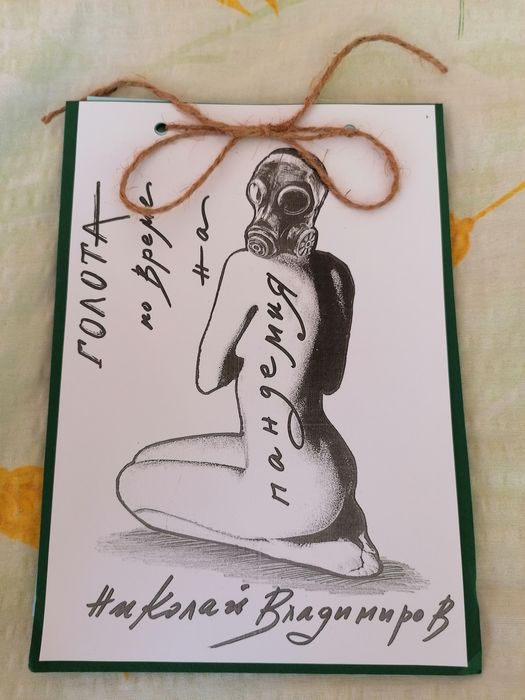 ГОЛОТА
по време
на
пандемия
Николай Владимиров